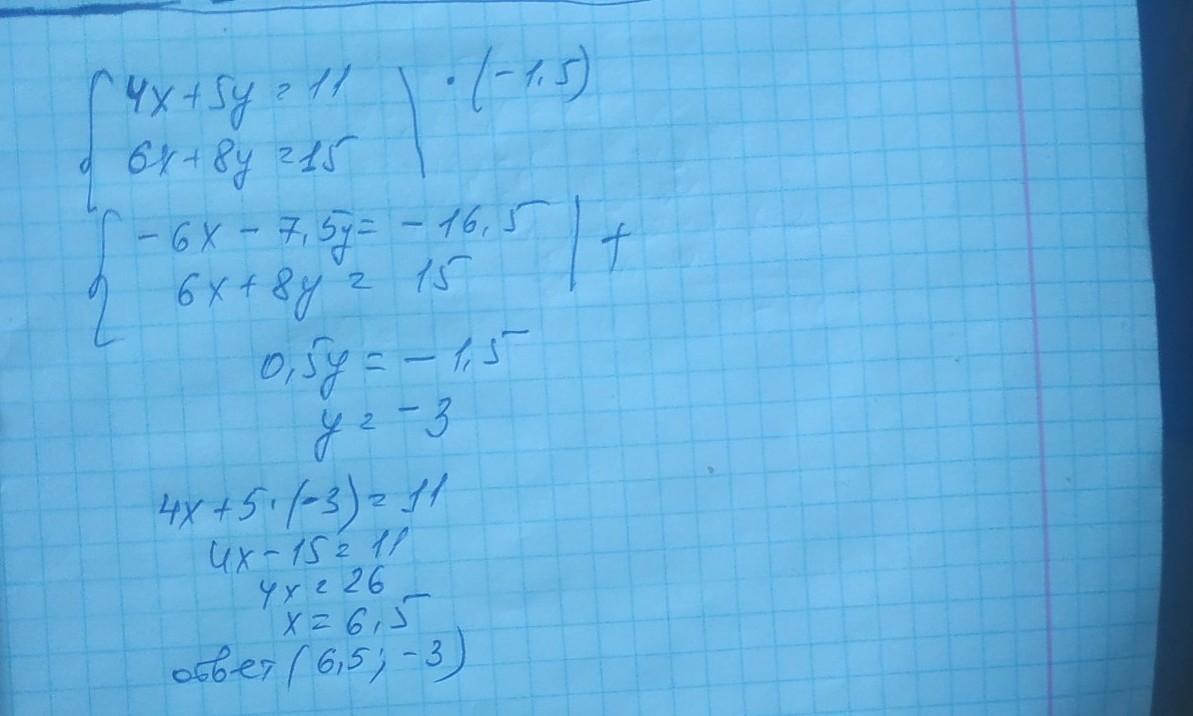 4x+5y=11 | ·(-1,5)
6x+8y=15
-6x-7,5y=-16,5 | +
6x+8y=15
0,5y=-1,5
y=-3
4x+5·(-3)=11
4x-15=11
4x=26
x=6,5
ответ (6,5;-3)